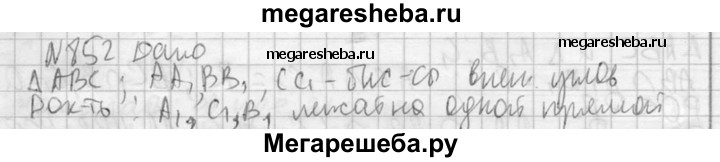 megaresheba.ru
N852 Дано
megaresheba.ru
megaresheba.ru
Δ ABC; AA₁, BB₁, CC₁ - бис-сы внеш углов
Док-ть: A₁, C₁, B₁ лежат на одной прямой
Мегарешеба.ру